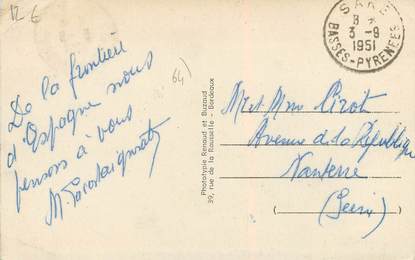 12 €
64)
De la frontière
d'Espagne nous
pensons à vous
M.
Phototypie Renaud et Buzaud
39, rue de la Rousselle - Bordeaux
SARE
3-9
1951
BASSES-PYRENEES
Mr et Mme Pirot
Avenue de la République
Nanterre
(Seine)